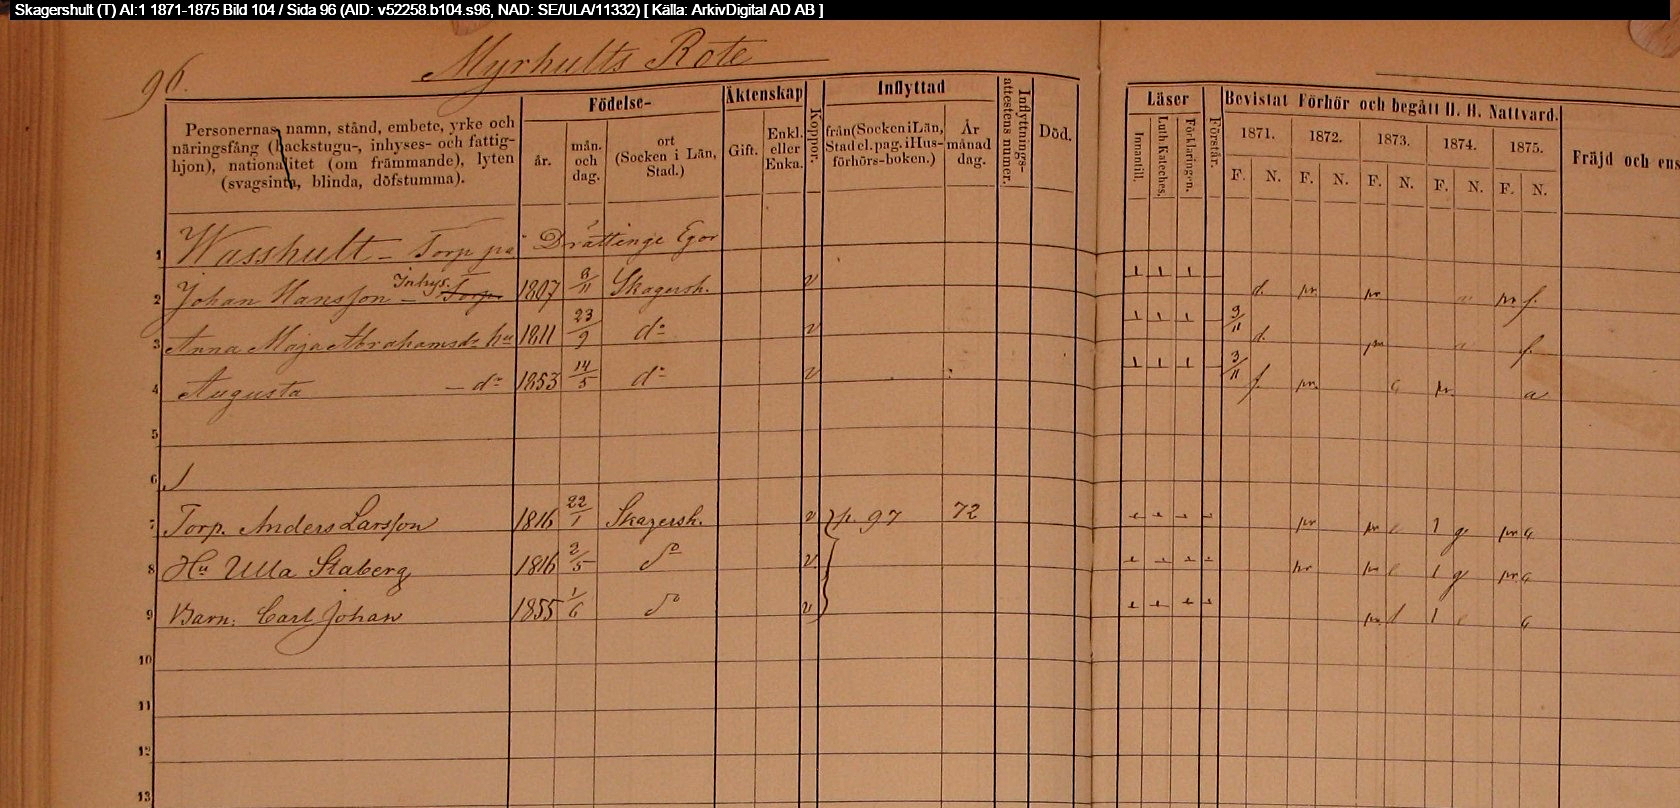 Skagershult (T) AI:1 1871-1875 Bild 104 / Sida 96 (AID: v52258.b104.s96, NAD: SE/ULA/11332) [ Källa: ArkivDigital AD AB ]
96.
Myrhults Rote
Personernas namn, stånd, embete, yrke och
näringsfång (backstugu-, inhyses- och fattig-
hjon), nationalitet (om främmande), lyten
(svagsinta, blinda, döfstumma).
Födelse-
år.
mån.
och
dag.
ort
(Socken i Län,
Stad.)
Äktenskap
Gift.
Enkl.
eller
Enka.
Koppor.
Inflyttad
från (Socken i Län,
Stad el. pag. i Hus-
förhörs-boken.)
År
månad
dag.
Inflyttnings-
attestens numer.
Död.
Läser
Innantill.
Luth. Kateches.
Förklaringen.
Förstår.
Bevistat Förhör och begått H. H. Nattvard.
1871. 1872. 1873. 1874. 1875.
F. N. F. N. F. N. F. N. F. N.
Fräjd och ens
1 Wasshult - Torp på Drättinge Egor
2 Johan Hansson - Inhys. Torp. 1807 8/11 Skagersh. v d. pr pr pr f.
3 Anna Maja Abrahamsdr hu 1811 23/9 do v 3/11 d. pr f.
4 Augusta - do 1853 14/5 do v 3/11 f. pr. pr. a
5
6
7 Torp. Anders Larsson 1816 22/1 Skagersh. v p. 97 72 pr pr 1 g pr
8 Hu Ulla Staberg 1816 2/5 do v. pr pr 1 g pr
9 Barn: Carl Johan 1855 1/6 do v pr 1
10
11
12
13